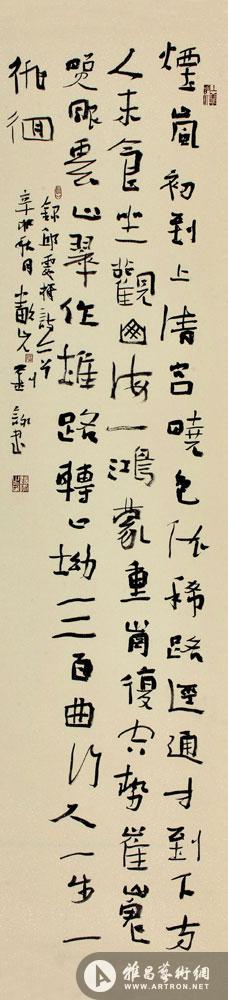 煙嵐初到上清宮曉色依稀路逕通才到下方
人未食坐觀海一鴻蒙重崗復勢崔嵬
晃眼雲山翠作堆路轉山坳三百曲行人一步一
徘徊
錄邱處機詩二首
辛卯秋月劉書
雅昌藝術網
WWW.ARTRON.NET